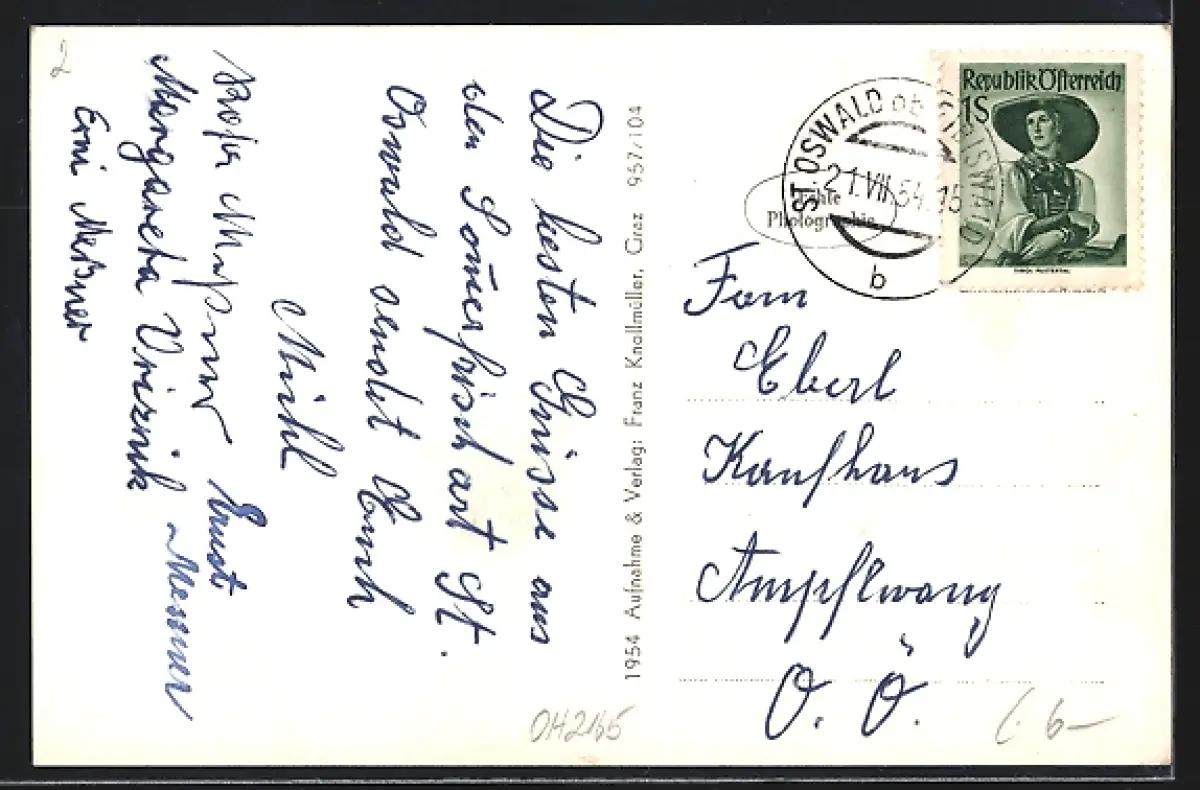 2
Die besten Grüsse aus
der Somerfrisch aot St.
Oswald sendet Euch
Michl
Ernst
Margareta Vriznik Messner
Erni Meßner
1954 Aufnahme & Verlag: Franz Knollmüller, Graz 957/104
Echte
Photographie
ST. OSWALD ob EIBISWALD
21.VII.54.15
b
Republik Österreich
1S
Fam
Eberl
Kaufhaus
Ampflwang
O. Ö.
OH2165
6-